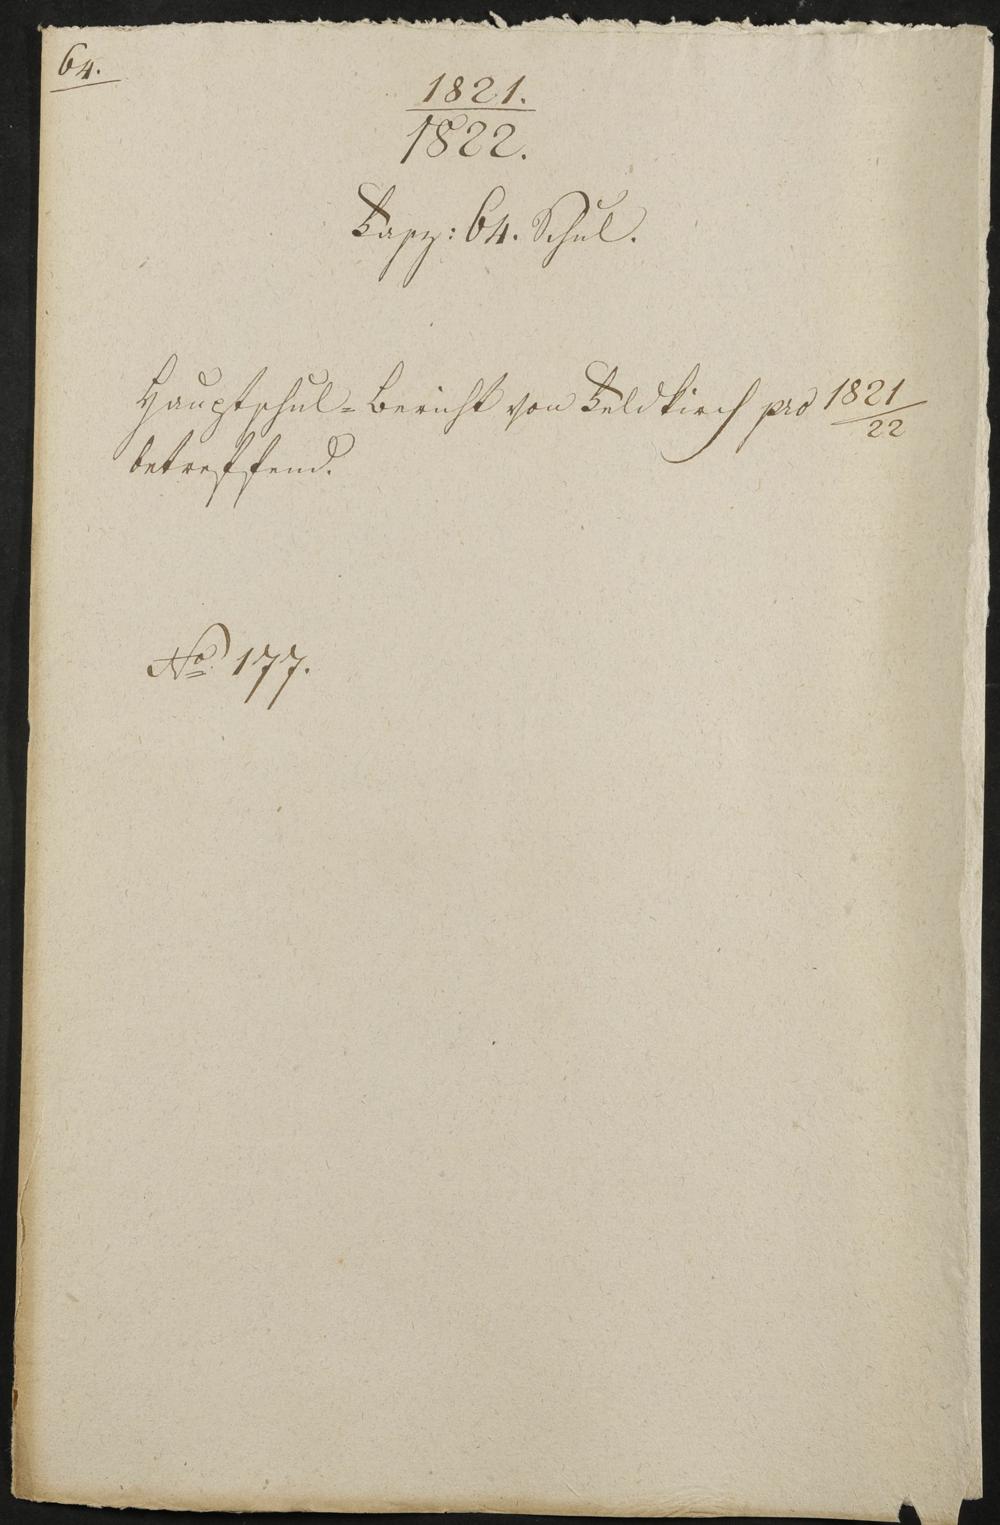 64.
1821.
1822.
Fasz: 64. Schul.
Hauptschul-Bericht von Feldkirch pro 1821/22
betreffend.
No. 177.